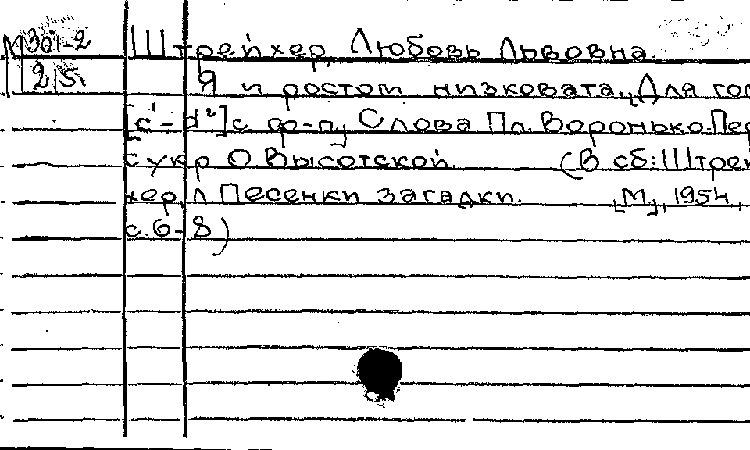 М301-2
215
Штрейхер, Любовь Львовна.
Я и ростом низковата. [Для гол
[c¹-d²] с ф-п.] Слова Пл. Воронько. Пер
с укр О. Высотской. (В сб: Штрей
хер, Л Песенки загадки. [М], 1954,
с. 6-8)